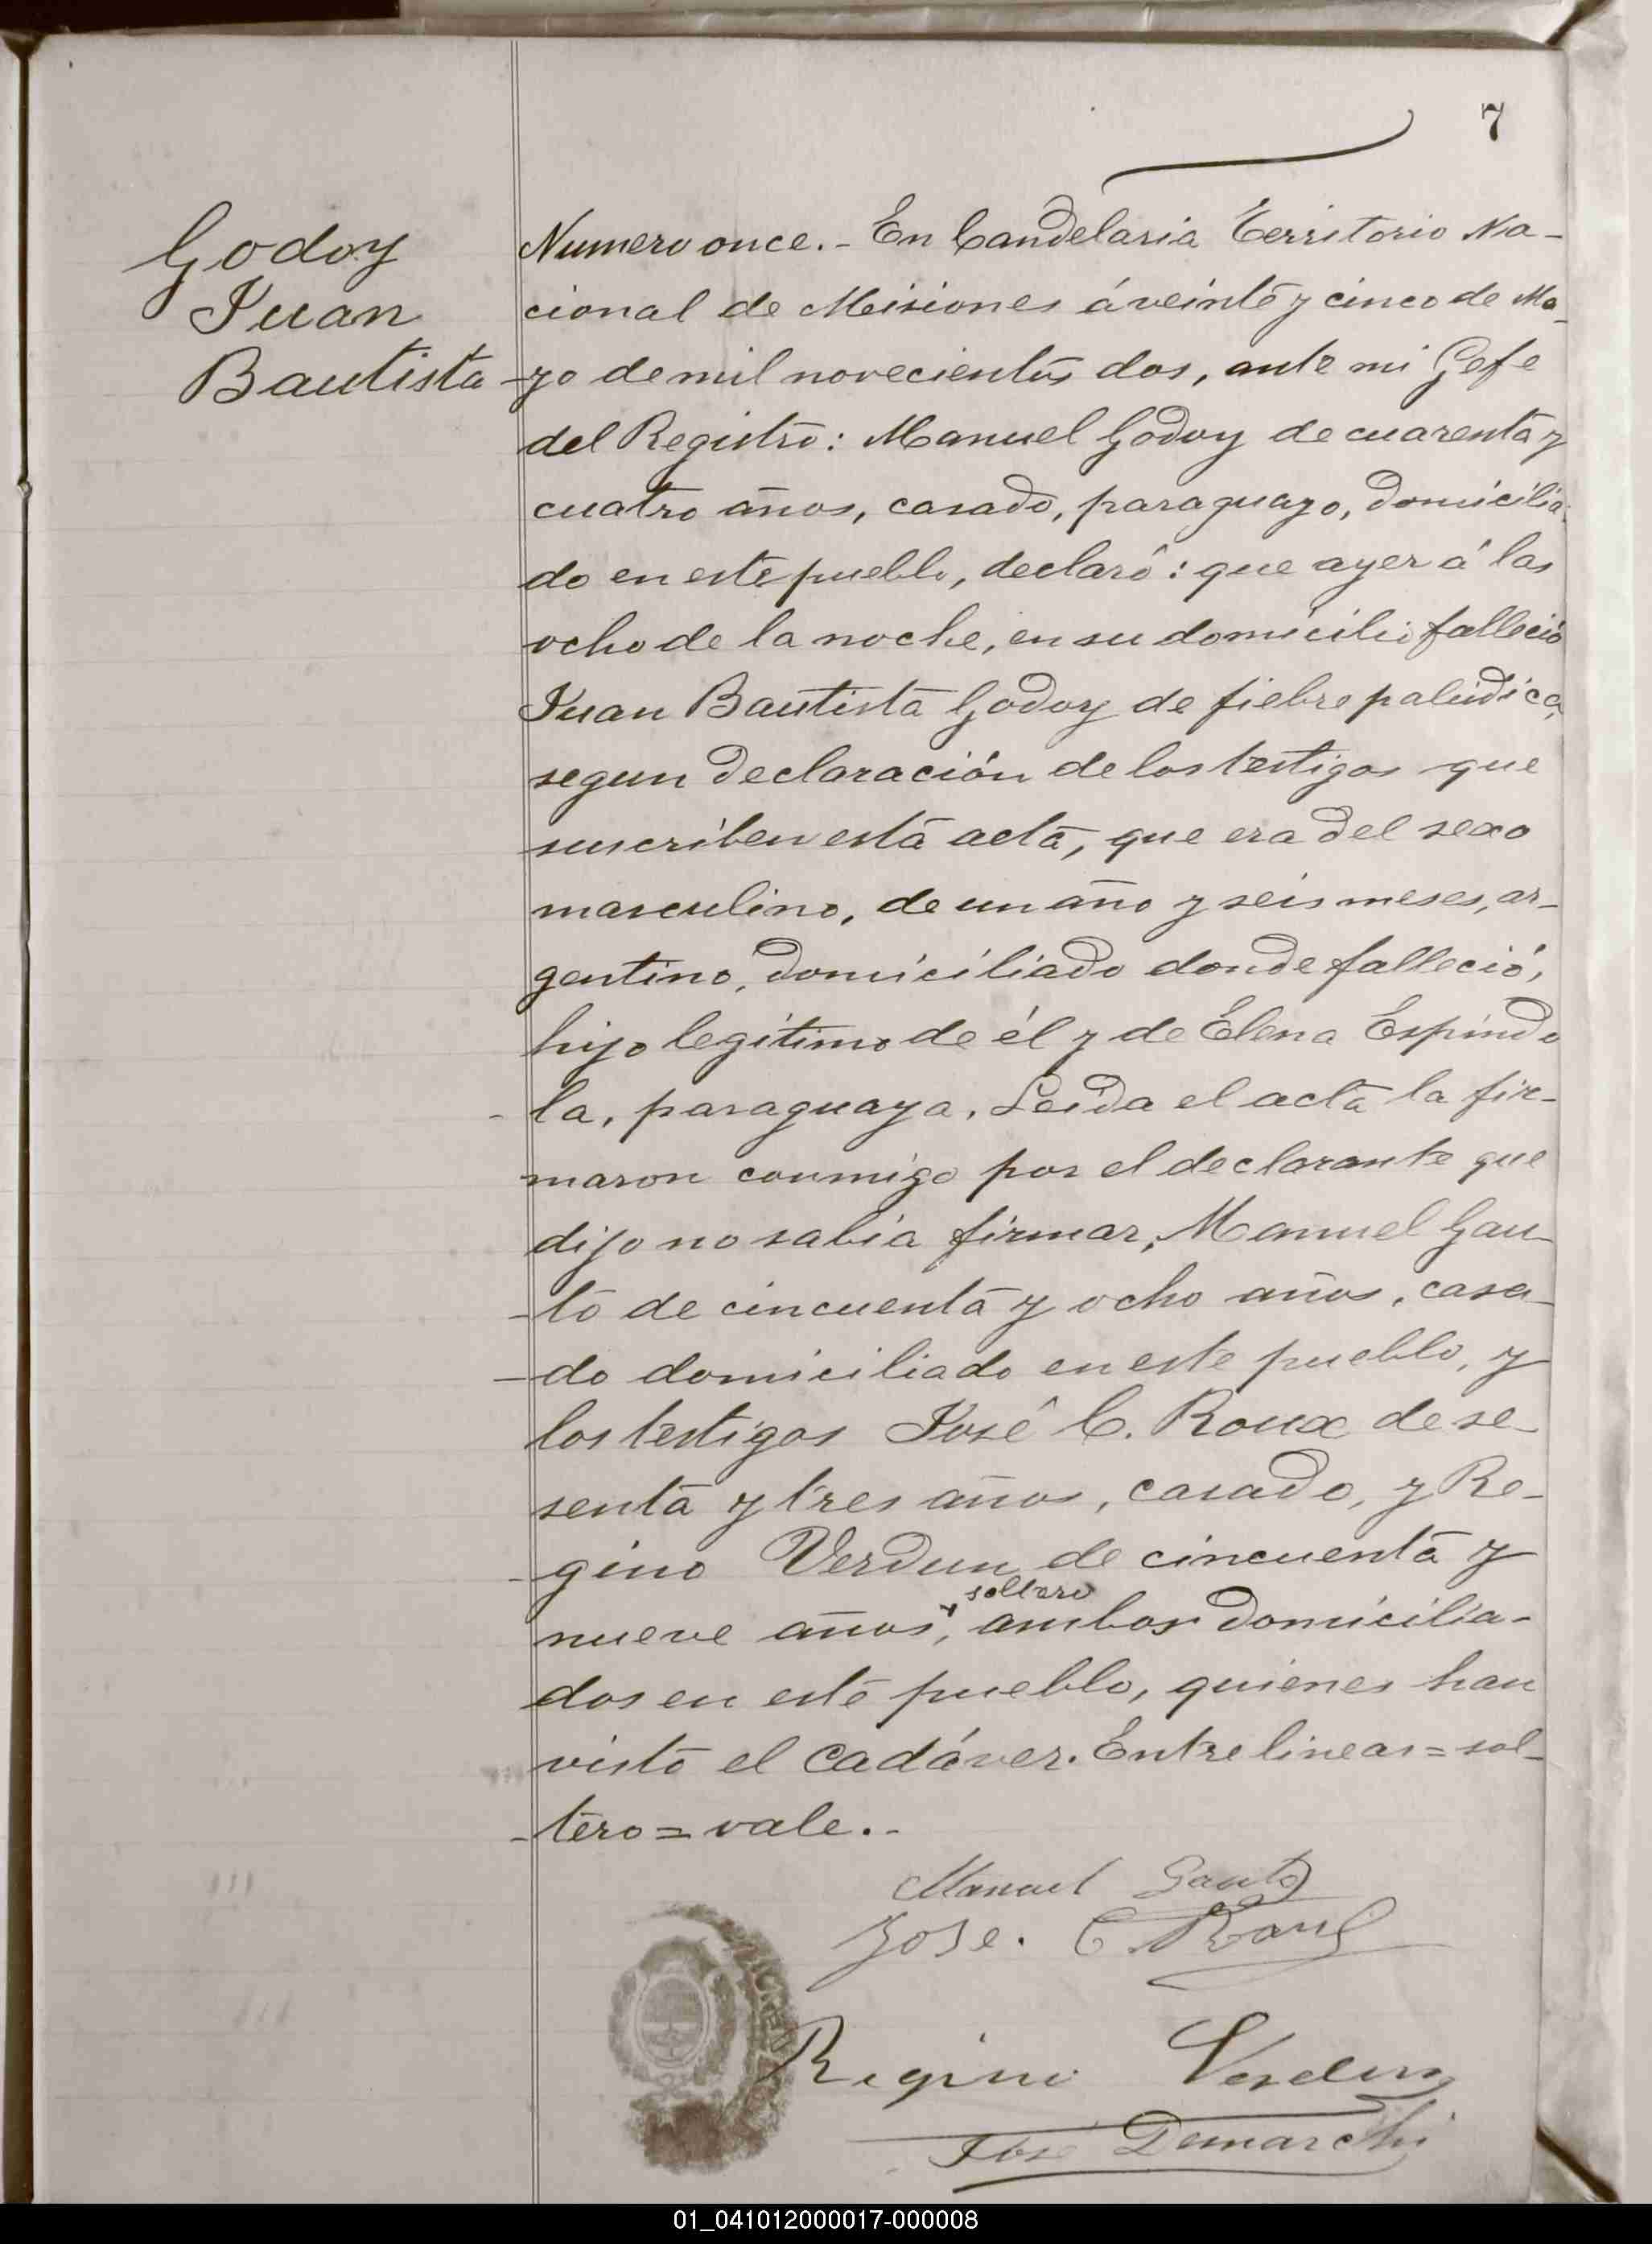 7
Godoy
Juan
Bautista
Numero once.- En Candelaria Territorio Na-
cional de Misiones á veinte y cinco de Ma-
yo de mil novecientos dos, ante mi Gefe
del Registro: Manuel Godoy de cuarenta y
cuatro años, casado, paraguayo, domicilia-
do en este pueblo, declaró: que ayer á las
ocho de la noche, en su domicilio falleció
Juan Bautista Godoy de fiebre palúdica,
segun declaración de los testigos que
suscriben esta acta, que era del sexo
masculino, de un año y seis meses, ar-
gentino, domiciliado donde falleció,
hijo legítimo de él y de Elena Espíndo
la, paraguaya. Leida el acta la fir-
maron conmigo por el declarante que
dijo no sabia firmar, Manuel Gau-
to de cincuenta y ocho años, casa-
do domiciliado en este pueblo, y
los testigos José C. Roux de se-
senta y tres años, casado, y Re-
gino Verdun de cincuenta y
soltero
nueve años, ambos domicilia-
dos en este pueblo, quienes han
visto el cadáver. Entre lineas = sol-
tero = vale.-
Manuel Gauto
Jose. C Roux
Regino Verdun
José Demarchi
01_041012000017-000008